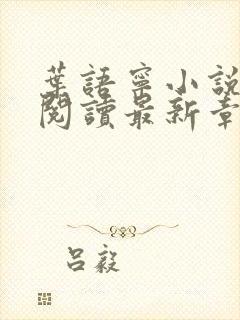 葉語寧小說
閱讀最新章
呂毅